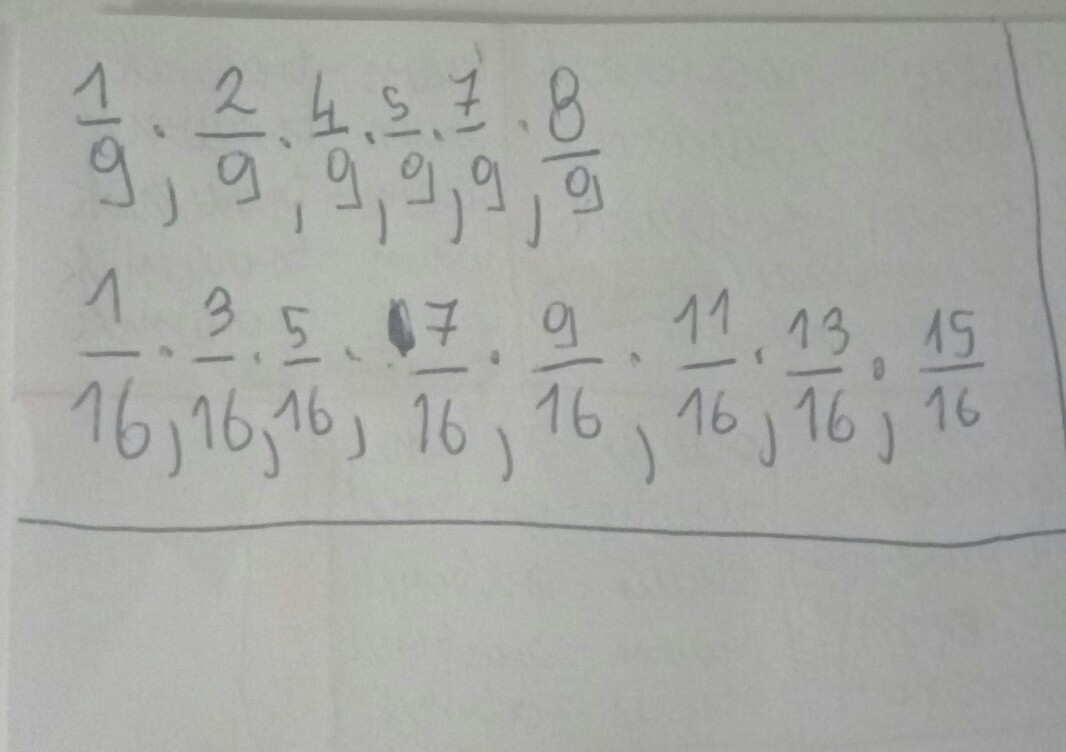 1/9 ; 2/9 ; 4/9 ; 5/9 ; 7/9 ; 8/9
1/16 ; 3/16 ; 5/16 ; 7/16 ; 9/16 ; 11/16 ; 13/16 ; 15/16